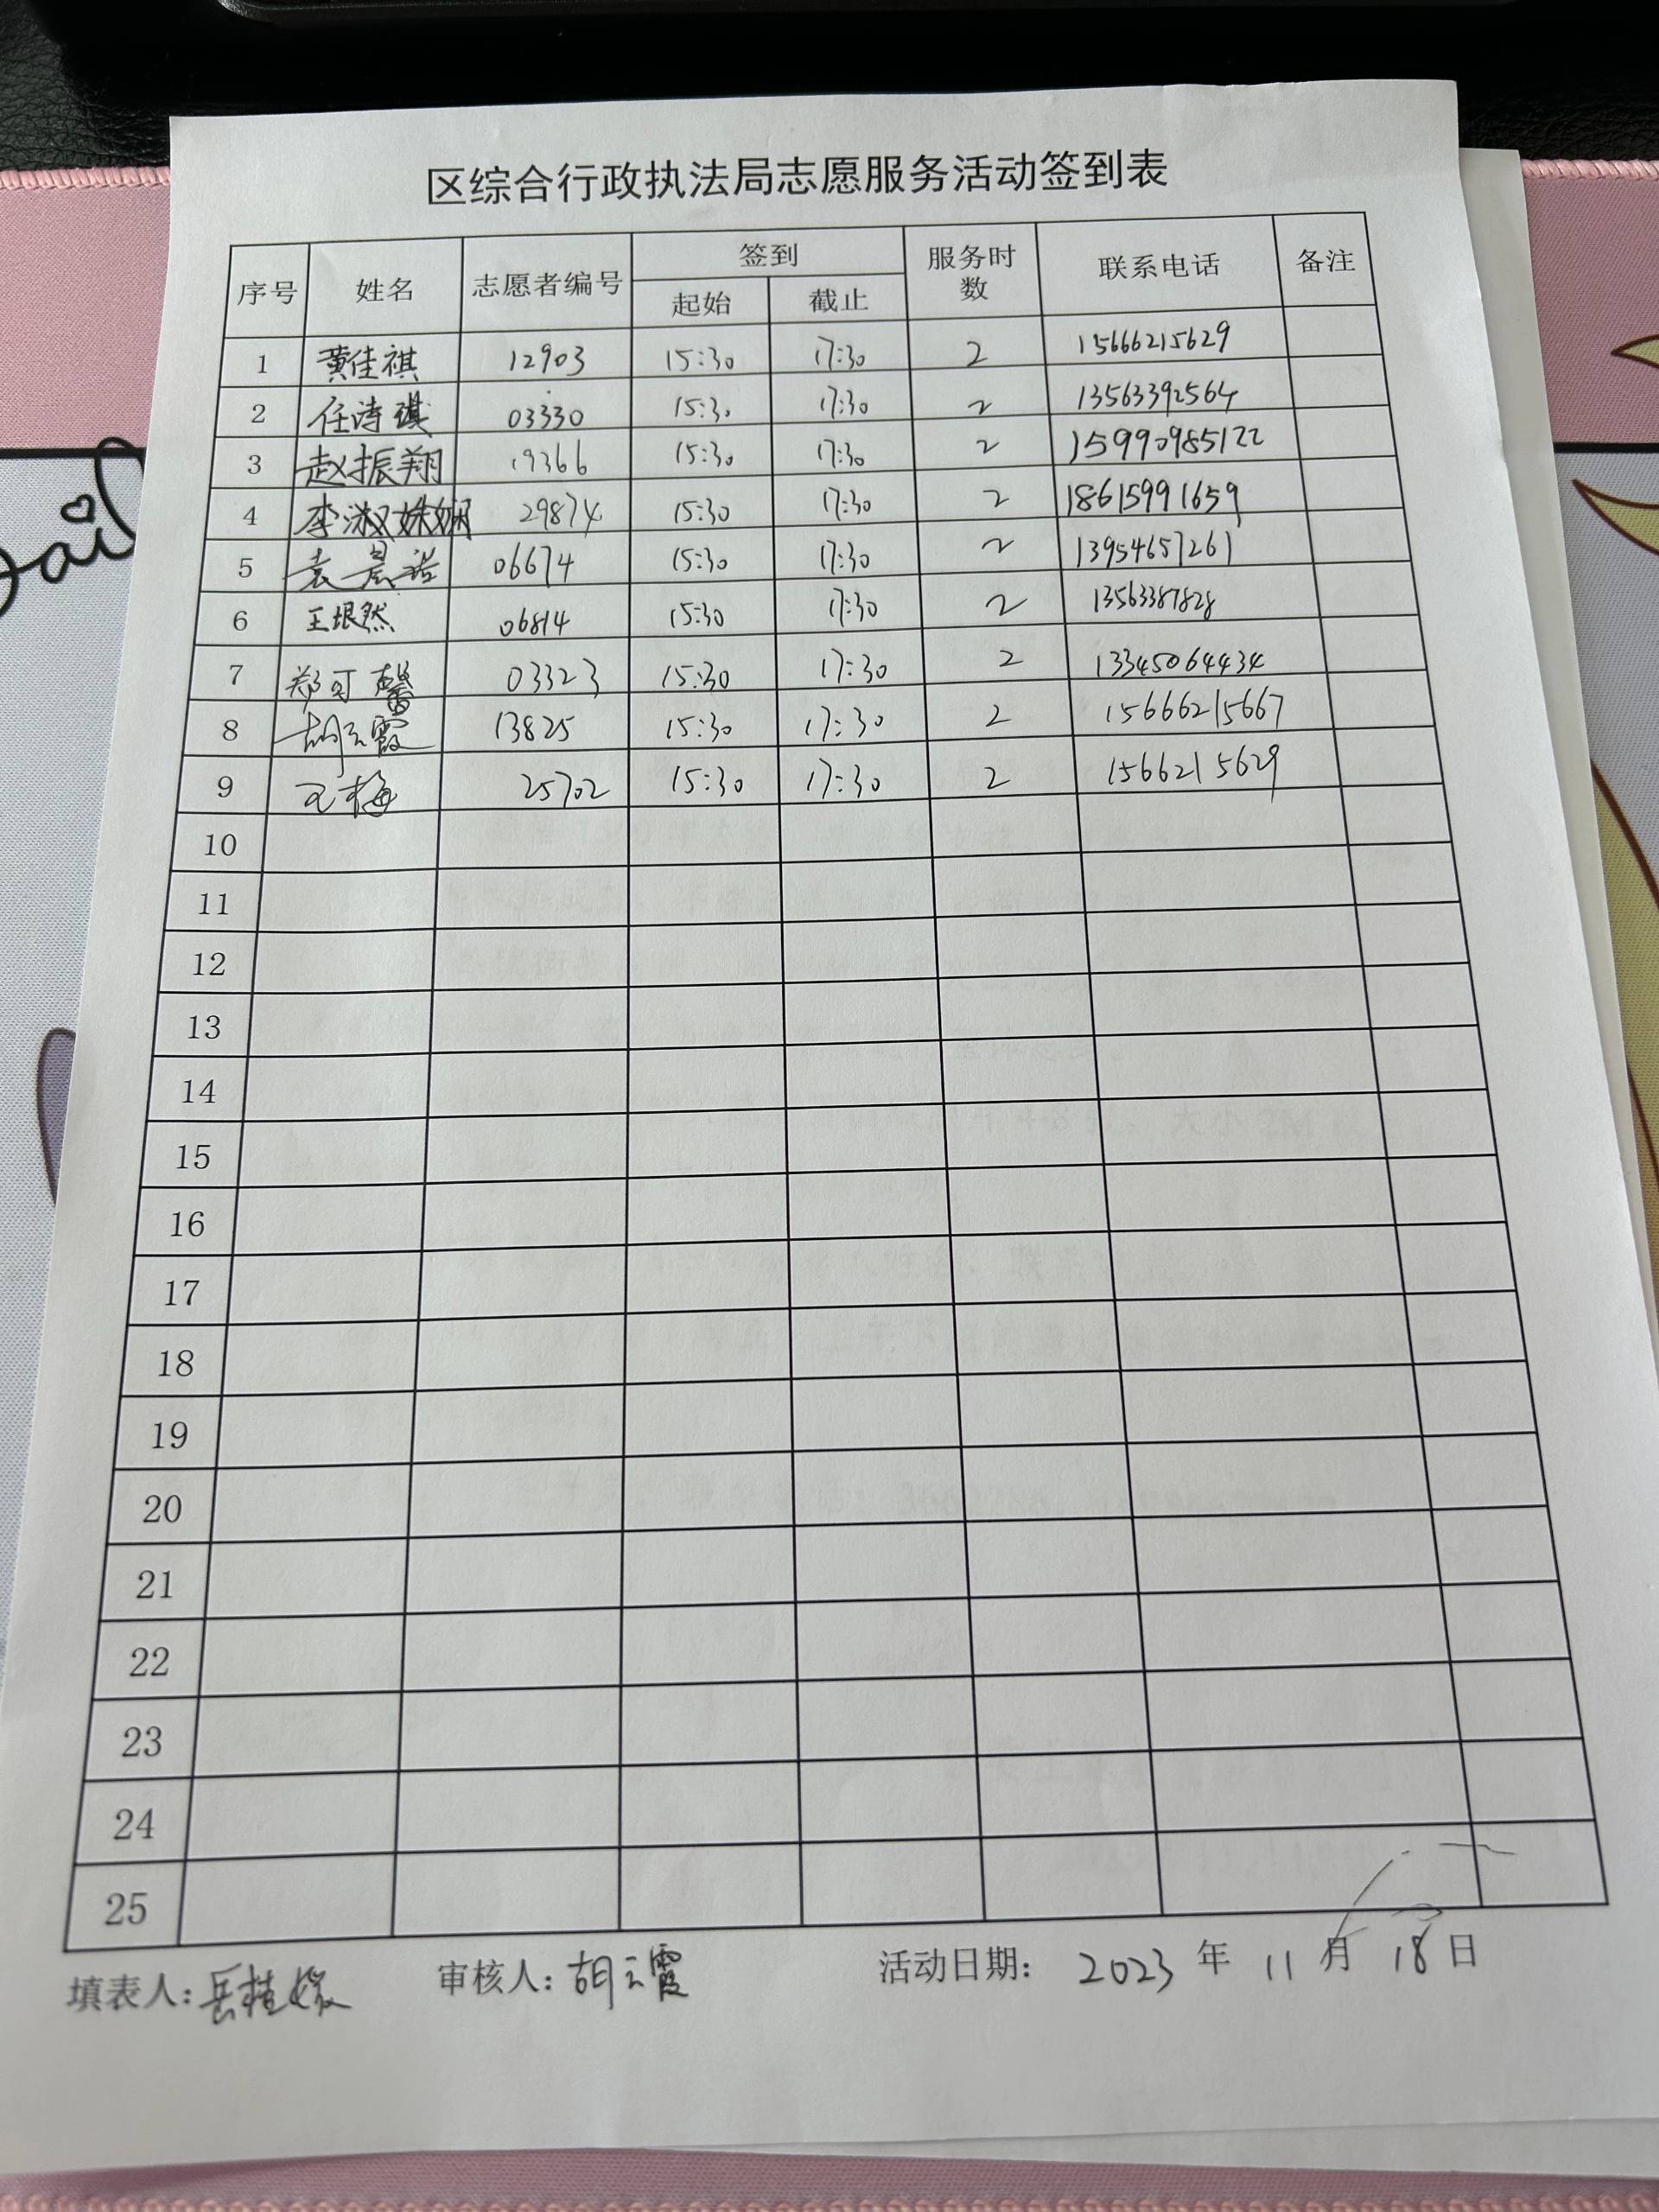 区综合行政执法局志愿服务活动签到表
序号 姓名 志愿者编号 签到 服务时数 联系电话 备注
起始 截止
1 黄佳祺 12903 15:30 17:30 2 15666215629
2 任诗琪 03330 15:30 17:30 2 13563392564
3 赵振翔 19366 15:30 17:30 2 15990985122
4 李淑姝娴 29874 15:30 17:30 2 18615991659
5 袁晨诺 06674 15:30 17:30 2 13954657261
6 王垠然 06814 15:30 17:30 2 13563387828
7 郑可馨 03323 15:30 17:30 2 13345064434
8 胡云霞 13825 15:30 17:30 2 15666215667
9 王梅 25702 15:30 17:30 2 1566215629
10
11
12
13
14
15
16
17
18
19
20
21
22
23
24
25
填表人: 岳桂 审核人: 胡云霞 活动日期: 2023 年 11 月 18 日